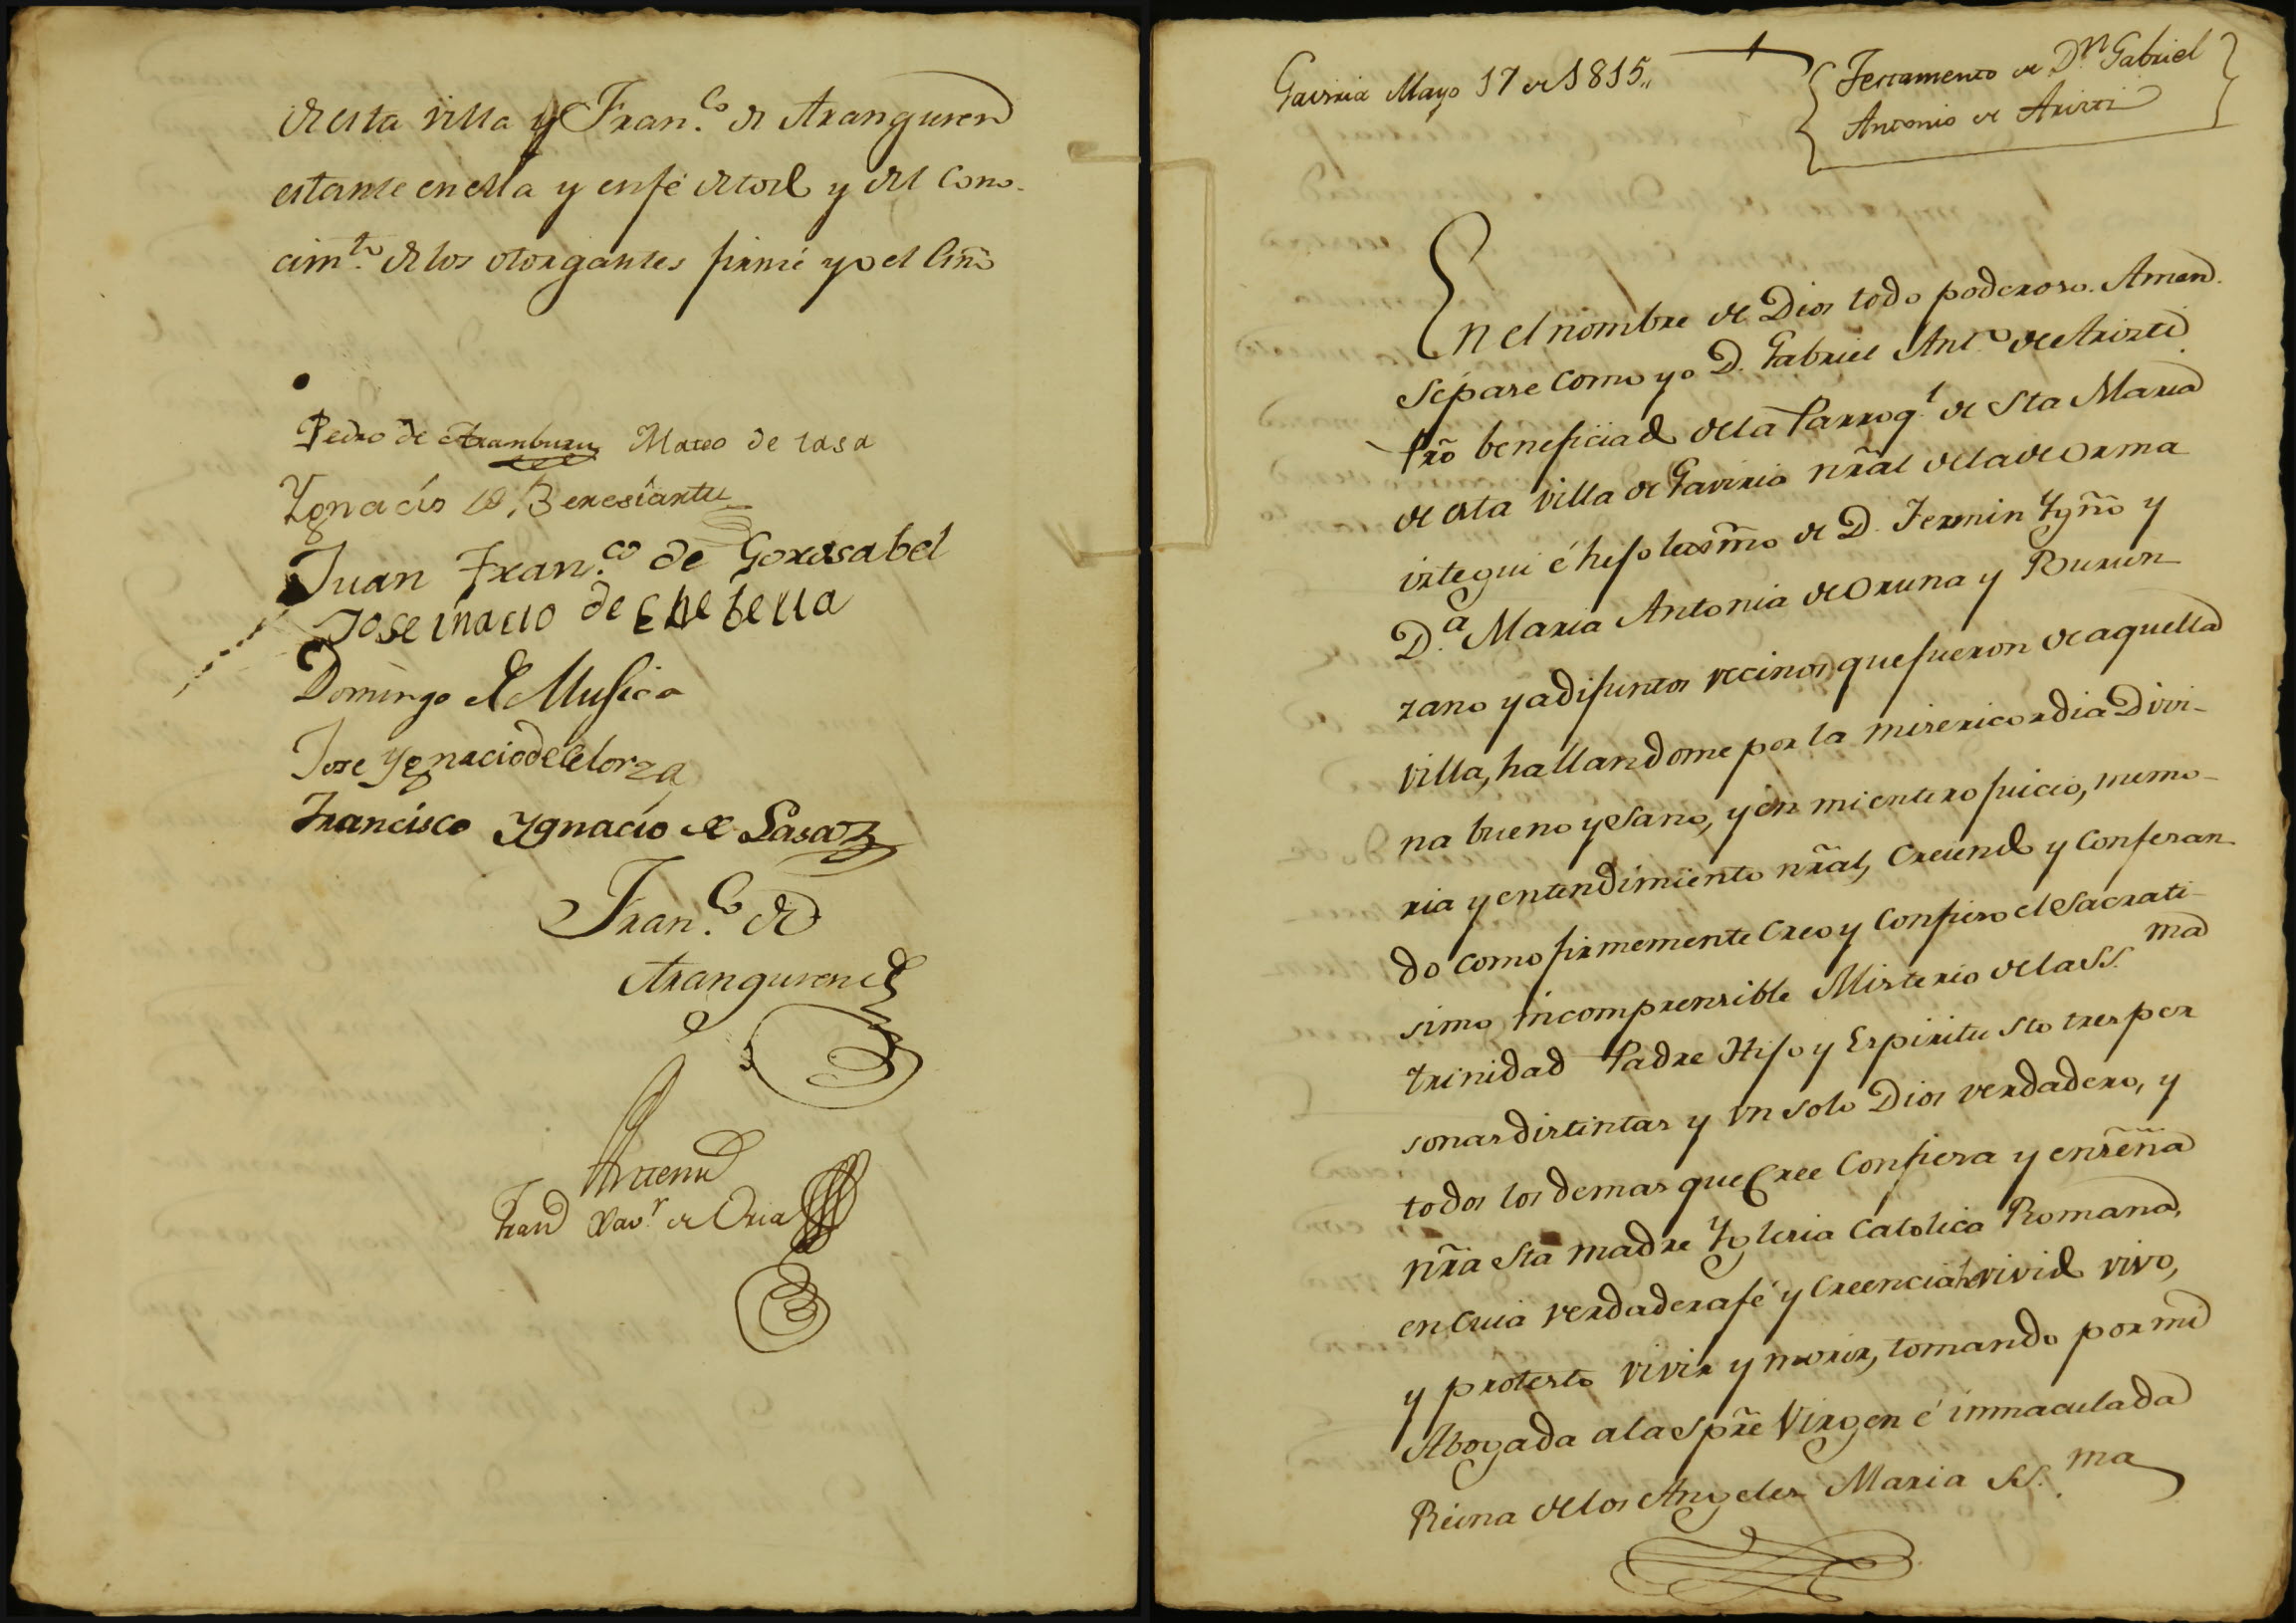 de esta villa y Fran.co de Aranguren
estante en ella y en fé de todo y del cono-
cim.to de los otorgantes firmé yo el Essno
Pedro de Aramburu Mateo de lasa
Ygnacio de Beresiartu
Juan Fran.co de Gorosabel
Jose inacio de EcheBeRia
Domingo de Mugica
Jose Ygnacio de Celorza
Francisco Ygnacio de Lasa
Fran.co de
Aranguren
Ante mi
Fran.co Xav.r de Oria
Gaviria Mayo 17 de 1815,,
Testamento de D.n Gabriel
Antonio de Aristi
En el nombre de Dios todo poderoso. Amen.
Sépase como yo D. Gabriel Ant.o de Aristi
Pr̃o beneficiado de la Parroq.l de Sta Maria
de esta villa de Gaviria nr̃al de la de Orma
iztegui é hijo lexm̃o de D. Fermin Ygñ̃o y
D.a Maria Antonia de Oruna y Rurun
zano ya difuntos vecinos que fueron de aquella
villa, hallandome por la misericordia Divi-
na bueno y sano, y en mi entero juicio, memo-
ria y entendimiento nr̃al, Creiendo y Confesan
do como firmemente Creo y Confieso el Sacrati-
simo incomprensible Misterio de la SS.ma
trinidad Padre Hijo y Espiritu Sto tres per
sonas distintas y un solo Dios verdadero, y
todos los demas que Cree Confiesa y enseña
nr̃a Sta madre Yglesia Catolica Romana,
en Cuia verdadera fé y Creencia he vivido vivo,
y protesto vivir y morir, tomando por mi
Abogada a la Spr̃e Virgen é inmaculada
Reina de los Angeles Maria SS.ma